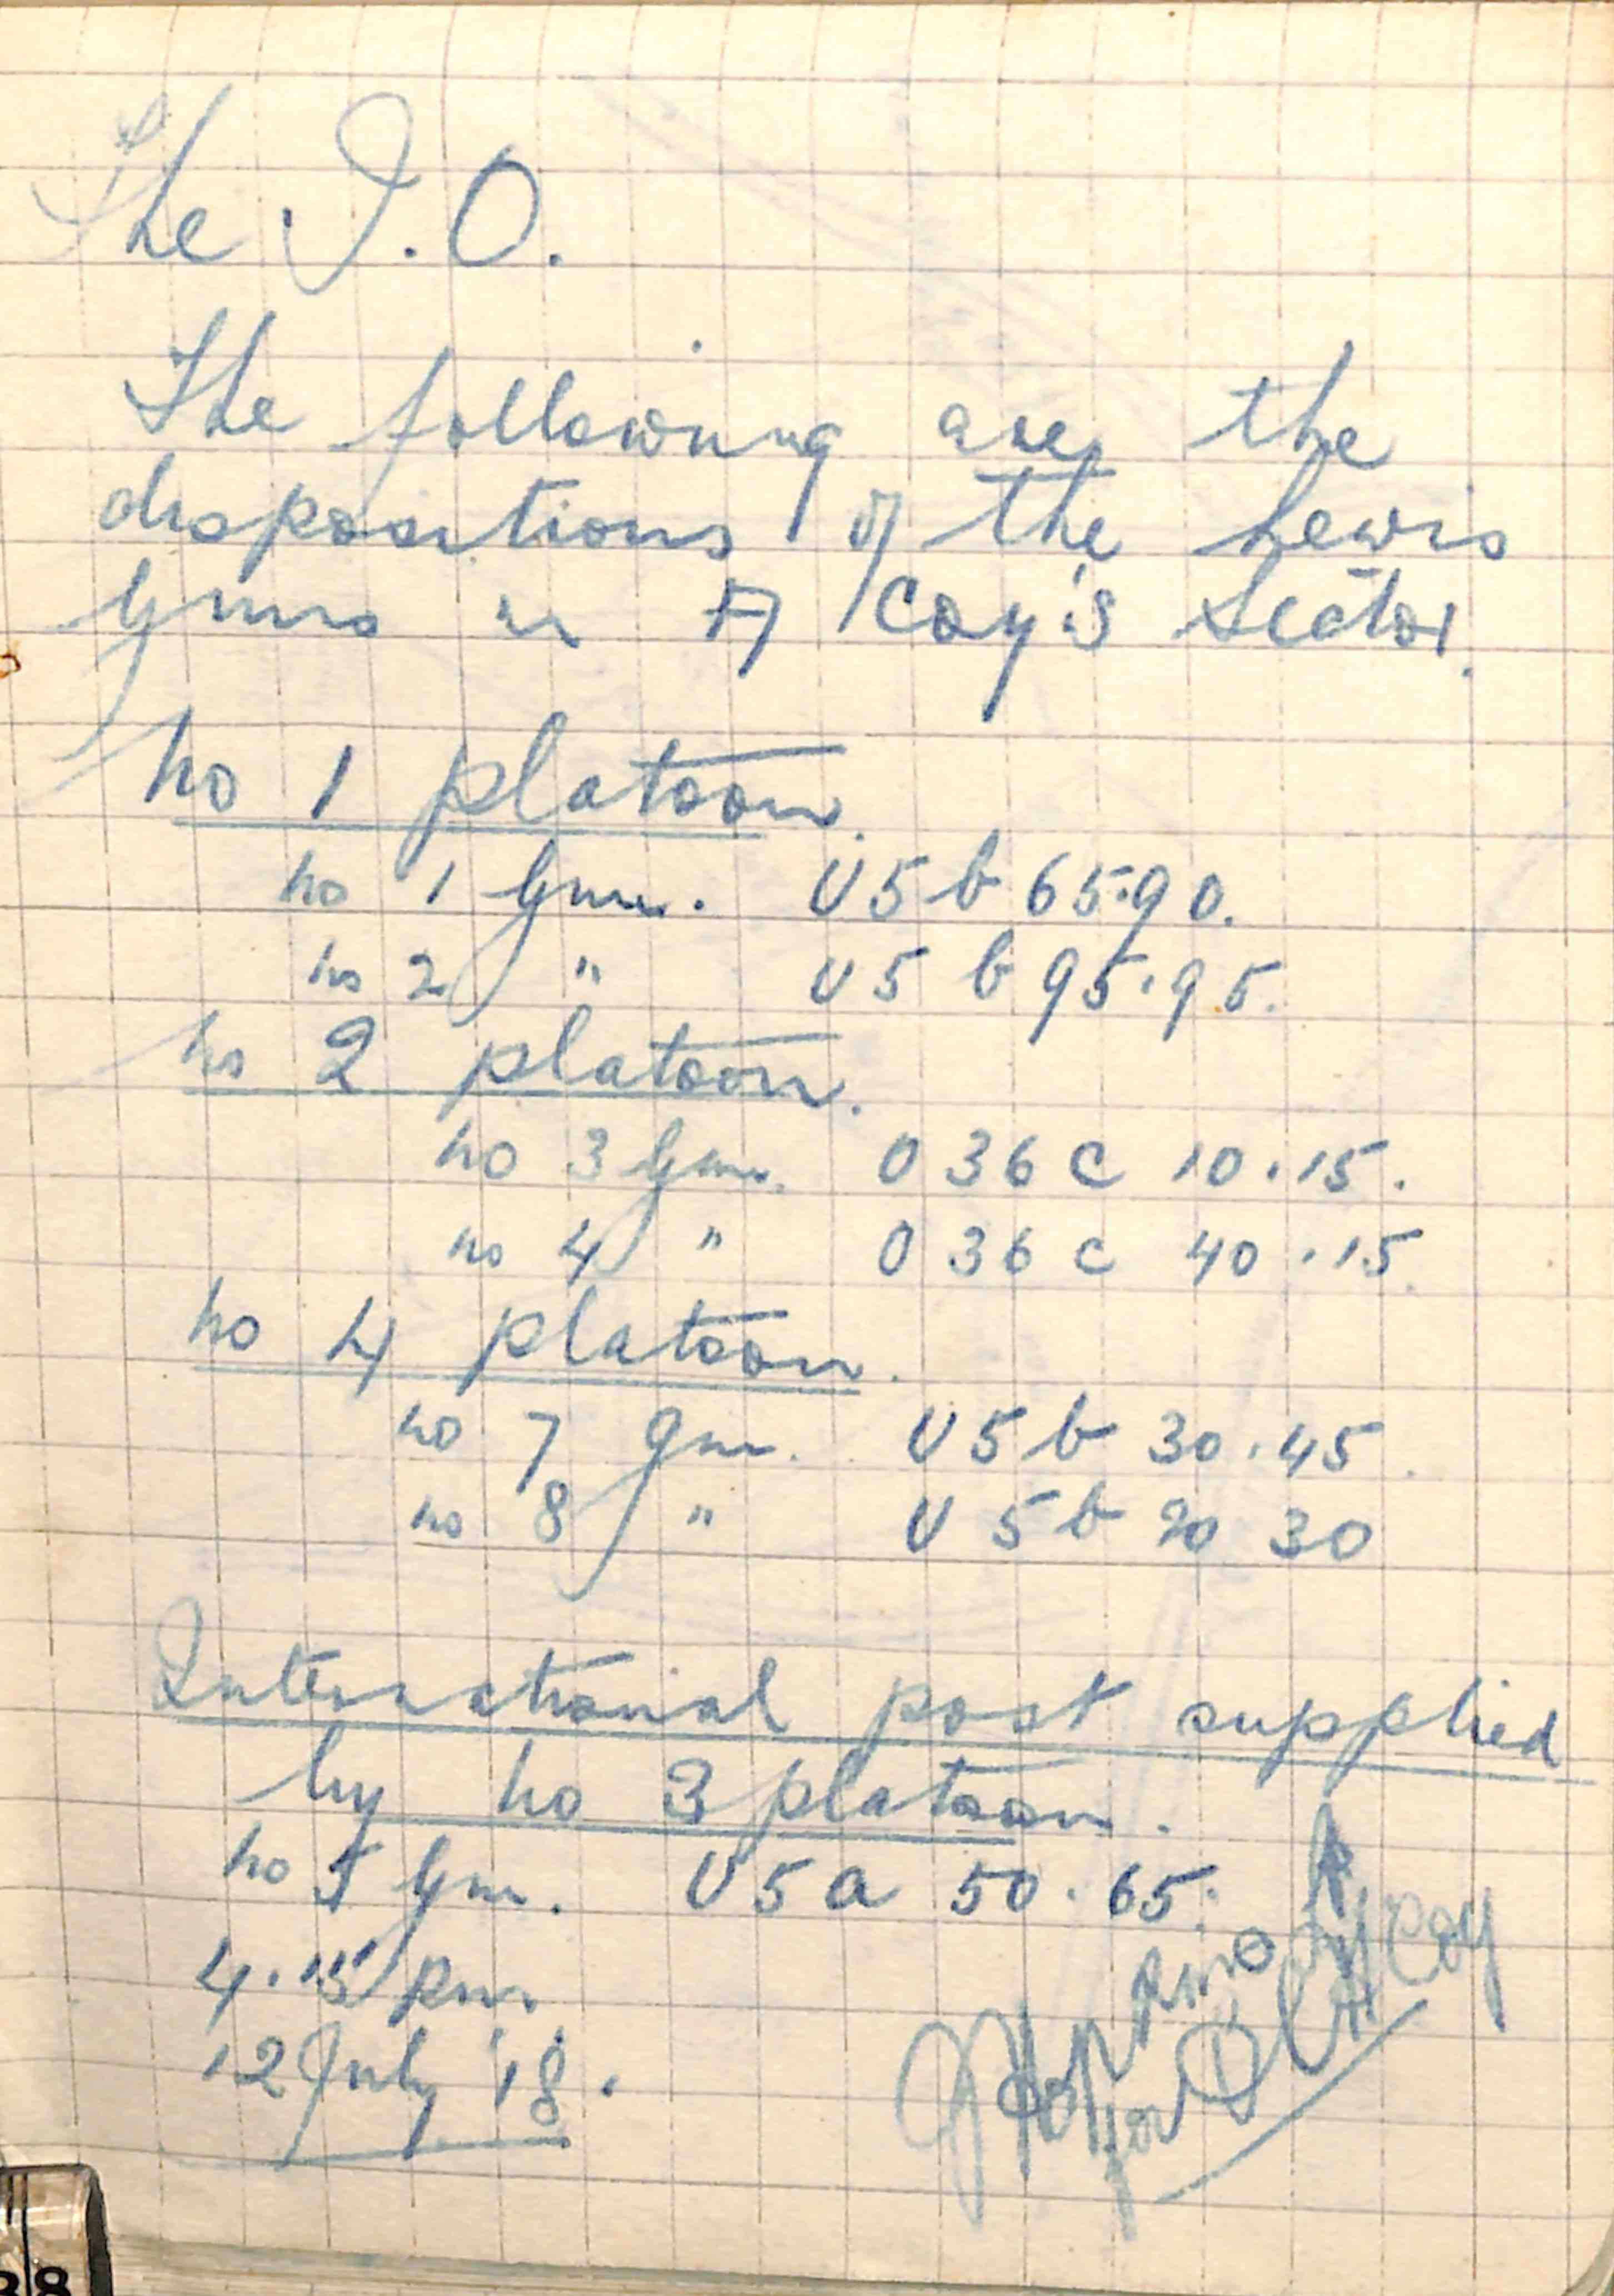 The I.O.
The following are the
dispositions of the Lewis
Guns in A Coy's Sector.
No 1 platoon.
No 1 Gun. U 5 b 65.90.
No 2 " U 5 b 95.95.
No 2 platoon.
No 3 Gun. O 36 c 10.15.
No 4 " O 36 c 40.15.
No 4 platoon.
No 7 gun. U 5 b 30.45.
No 8 " U 5 b 20 30
International post supplied
by No 3 platoon.
No 5 Gun. U 5 a 50.65.
4.15 pm.
12 July '18.
for O C A Coy
38